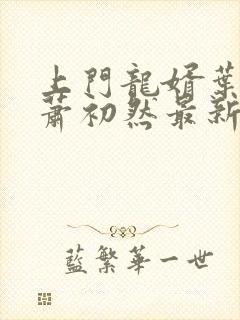 上門龍婿葉
蕭初然最新
藍繁華一世